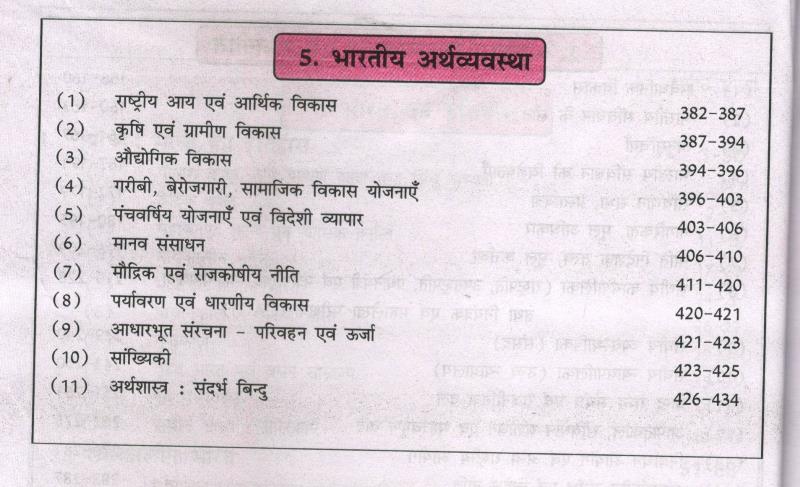 5. भारतीय अर्थव्यवस्था
(1) राष्ट्रीय आय एवं आर्थिक विकास 382-387
(2) कृषि एवं ग्रामीण विकास 387-394
(3) औद्योगिक विकास 394-396
(4) गरीबी, बेरोजगारी, सामाजिक विकास योजनाएँ 396-403
(5) पंचवर्षिय योजनाएँ एवं विदेशी व्यापार 403-406
(6) मानव संसाधन 406-410
(7) मौद्रिक एवं राजकोषीय नीति 411-420
(8) पर्यावरण एवं धारणीय विकास 420-421
(9) आधारभूत संरचना - परिवहन एवं ऊर्जा 421-423
(10) सांख्यिकी 423-425
(11) अर्थशास्त्र : संदर्भ बिन्दु 426-434